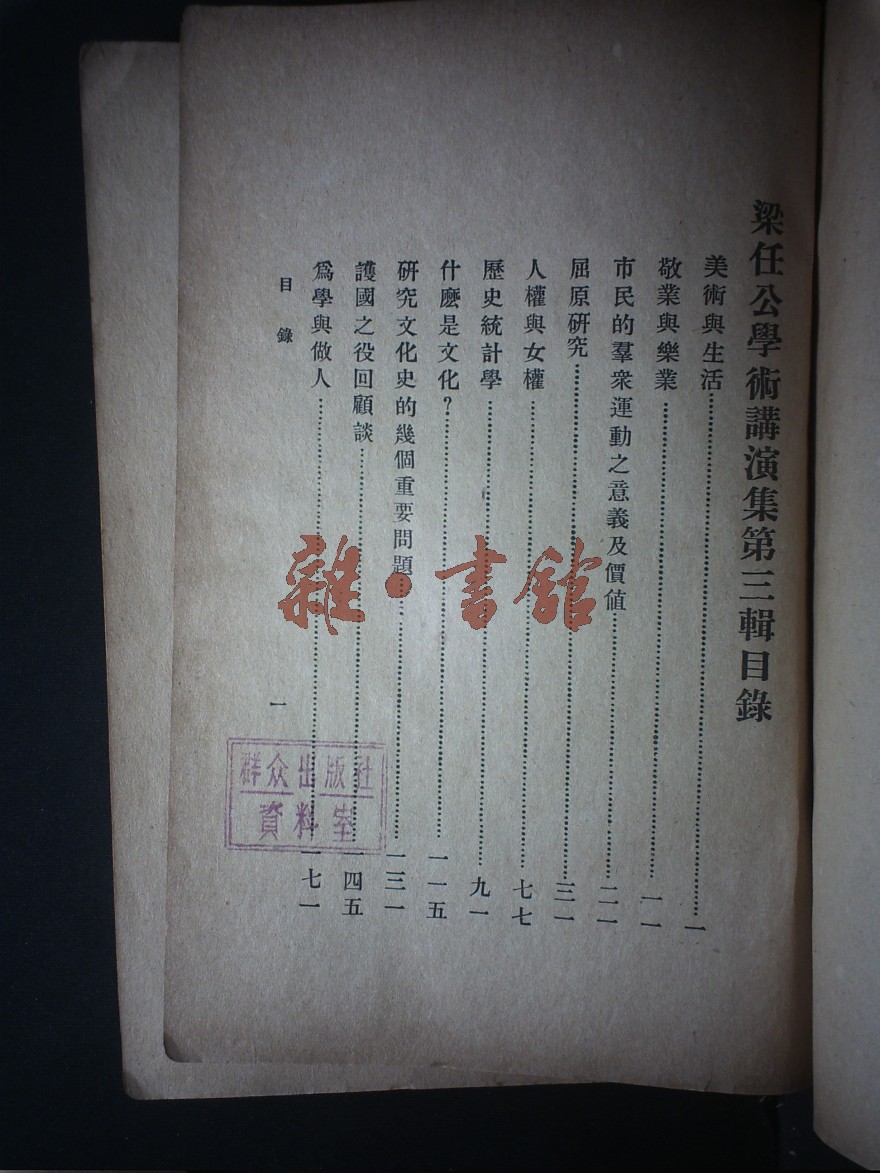 梁任公學術講演集第三輯目錄
美術與生活……一
敬業與樂業……一一
市民的羣衆運動之意義及價值……二一
屈原研究……三一
人權與女權……七七
歷史統計學……九一
什麽是文化?……一一五
研究文化史的幾個重要問題……一三一
護國之役回顧談……一四五
爲學與做人……一七一
目錄
一
雜·書館
群众出版社
資料室